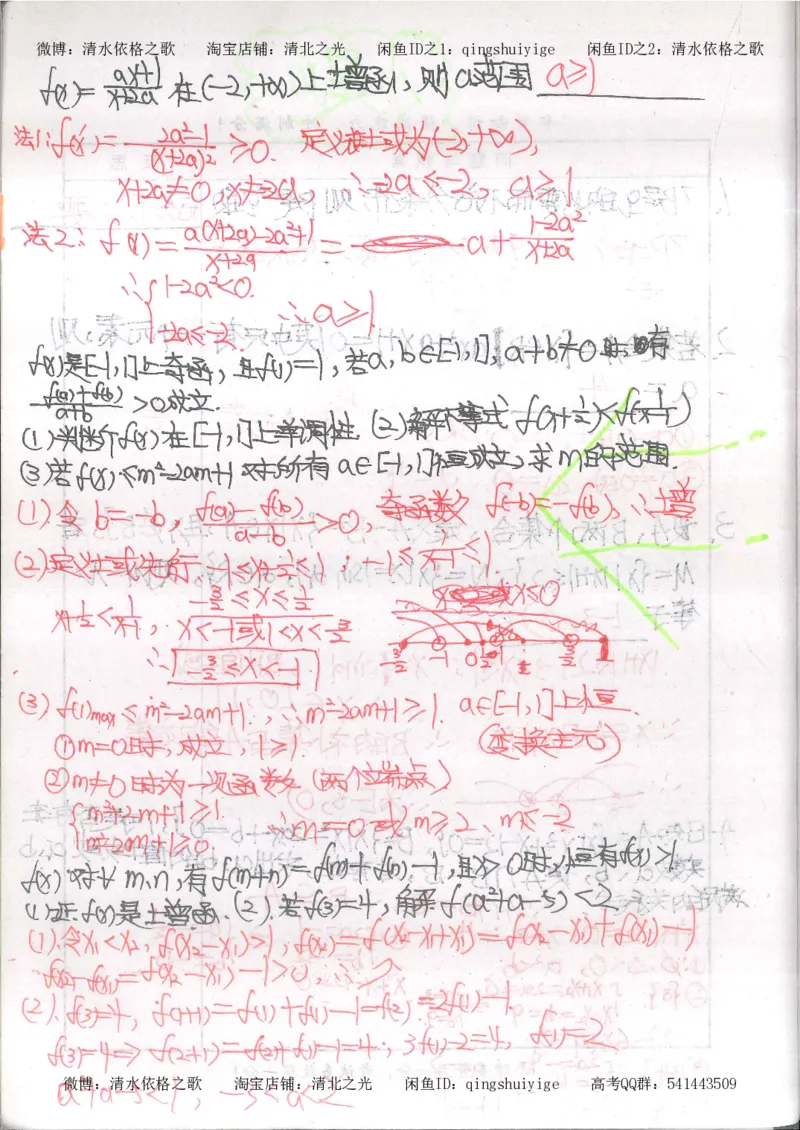 微博：清水依格之歌 淘宝店铺：清北之光 闲鱼ID之1：qingshuiyige 闲鱼ID之2：清水依格之歌
f(x)=\frac{ax+1}{x+2a}在(-2,+∞)上士增函, 则a范围 a≥1
法1: f'(x)=\frac{2a²-1}{(x+2a)²}≥0. 定义域士或为(-2,+∞),
x+2a≠0, x≠-2a, ∴-2a≤-2, a≥1
法2: f(x)=\frac{a(x+2a)-2a²+1}{x+2a}=a+\frac{1-2a²}{x+2a}
∴{1-2a²<0.
-2a≤-2. ∴a≥1.
f(x)是[-1,1]上奇函, 且f(1)=1, 若a,b∈[-1,1], a+b≠0时, 有
\frac{f(a)+f(b)}{a+b}>0成立.
(1)判断f(x)在[-1,1]上单调性. (2)解不等式 f(x+\frac{1}{2})<f(\frac{1}{x-1})
(3)若f(x)≤m²-2am+1 对所有a∈[-1,1]恒成立, 求m的范围.
(1)令b=-b, \frac{f(a)-f(b)}{a-b}>0, 奇函数 f(-b)=-f(b), ∴士曾
(2)定义域先行, -1≤x+\frac{1}{2}≤1; -1≤\frac{1}{x-1}≤1
-\frac{3}{2}≤x≤\frac{1}{2} 或x≤0
x+\frac{1}{2}<\frac{1}{x-1}, x<-1或1<x<\frac{3}{2}
-\frac{3}{2} -1 0 \frac{1}{2} 1 \frac{3}{2} 2
∴-\frac{3}{2}≤x<-1
(3) f(1)max≤m²-2am+1, ∴m²-2am+1≥1. a∈[-1,1]上恒.
①m=0时, 成立, 1≥1. (变换主元)
②m≠0时为一次函数 (两个端点)
{m²+2m+1≥1.
m²-2m+1≥0. ∴m=0或m≥2、m≤-2
f(x)对∀m,n,有f(m+n)=f(m)+f(n)-1, 且x>0时,恒有f(x)>1
(1)证f(x)是士曾函. (2).若f(3)=4, 解f(a²+a-5)<2
(1).令x₁<x₂, f(x₂-x₁)>1, f(x₂)=f(x₂-x₁+x₁)=f(x₂-x₁)+f(x₁)-1
f(x₂)-f(x₁)=f(x₂-x₁)-1>0, ∴↗
(2). f(3)=4, f(1+1)=f(1)+f(1)-1=f(2)=2f(1)-1
f(3)=4⇒f(2+1)=f(2)+f(1)-1=4; 3f(1)-2=4, f(1)=2
微博：清水依格之歌 淘宝店铺：清北之光 闲鱼ID：qingshuiyige 高考QQ群：541443509
a²+a-5<1, -3<a<2